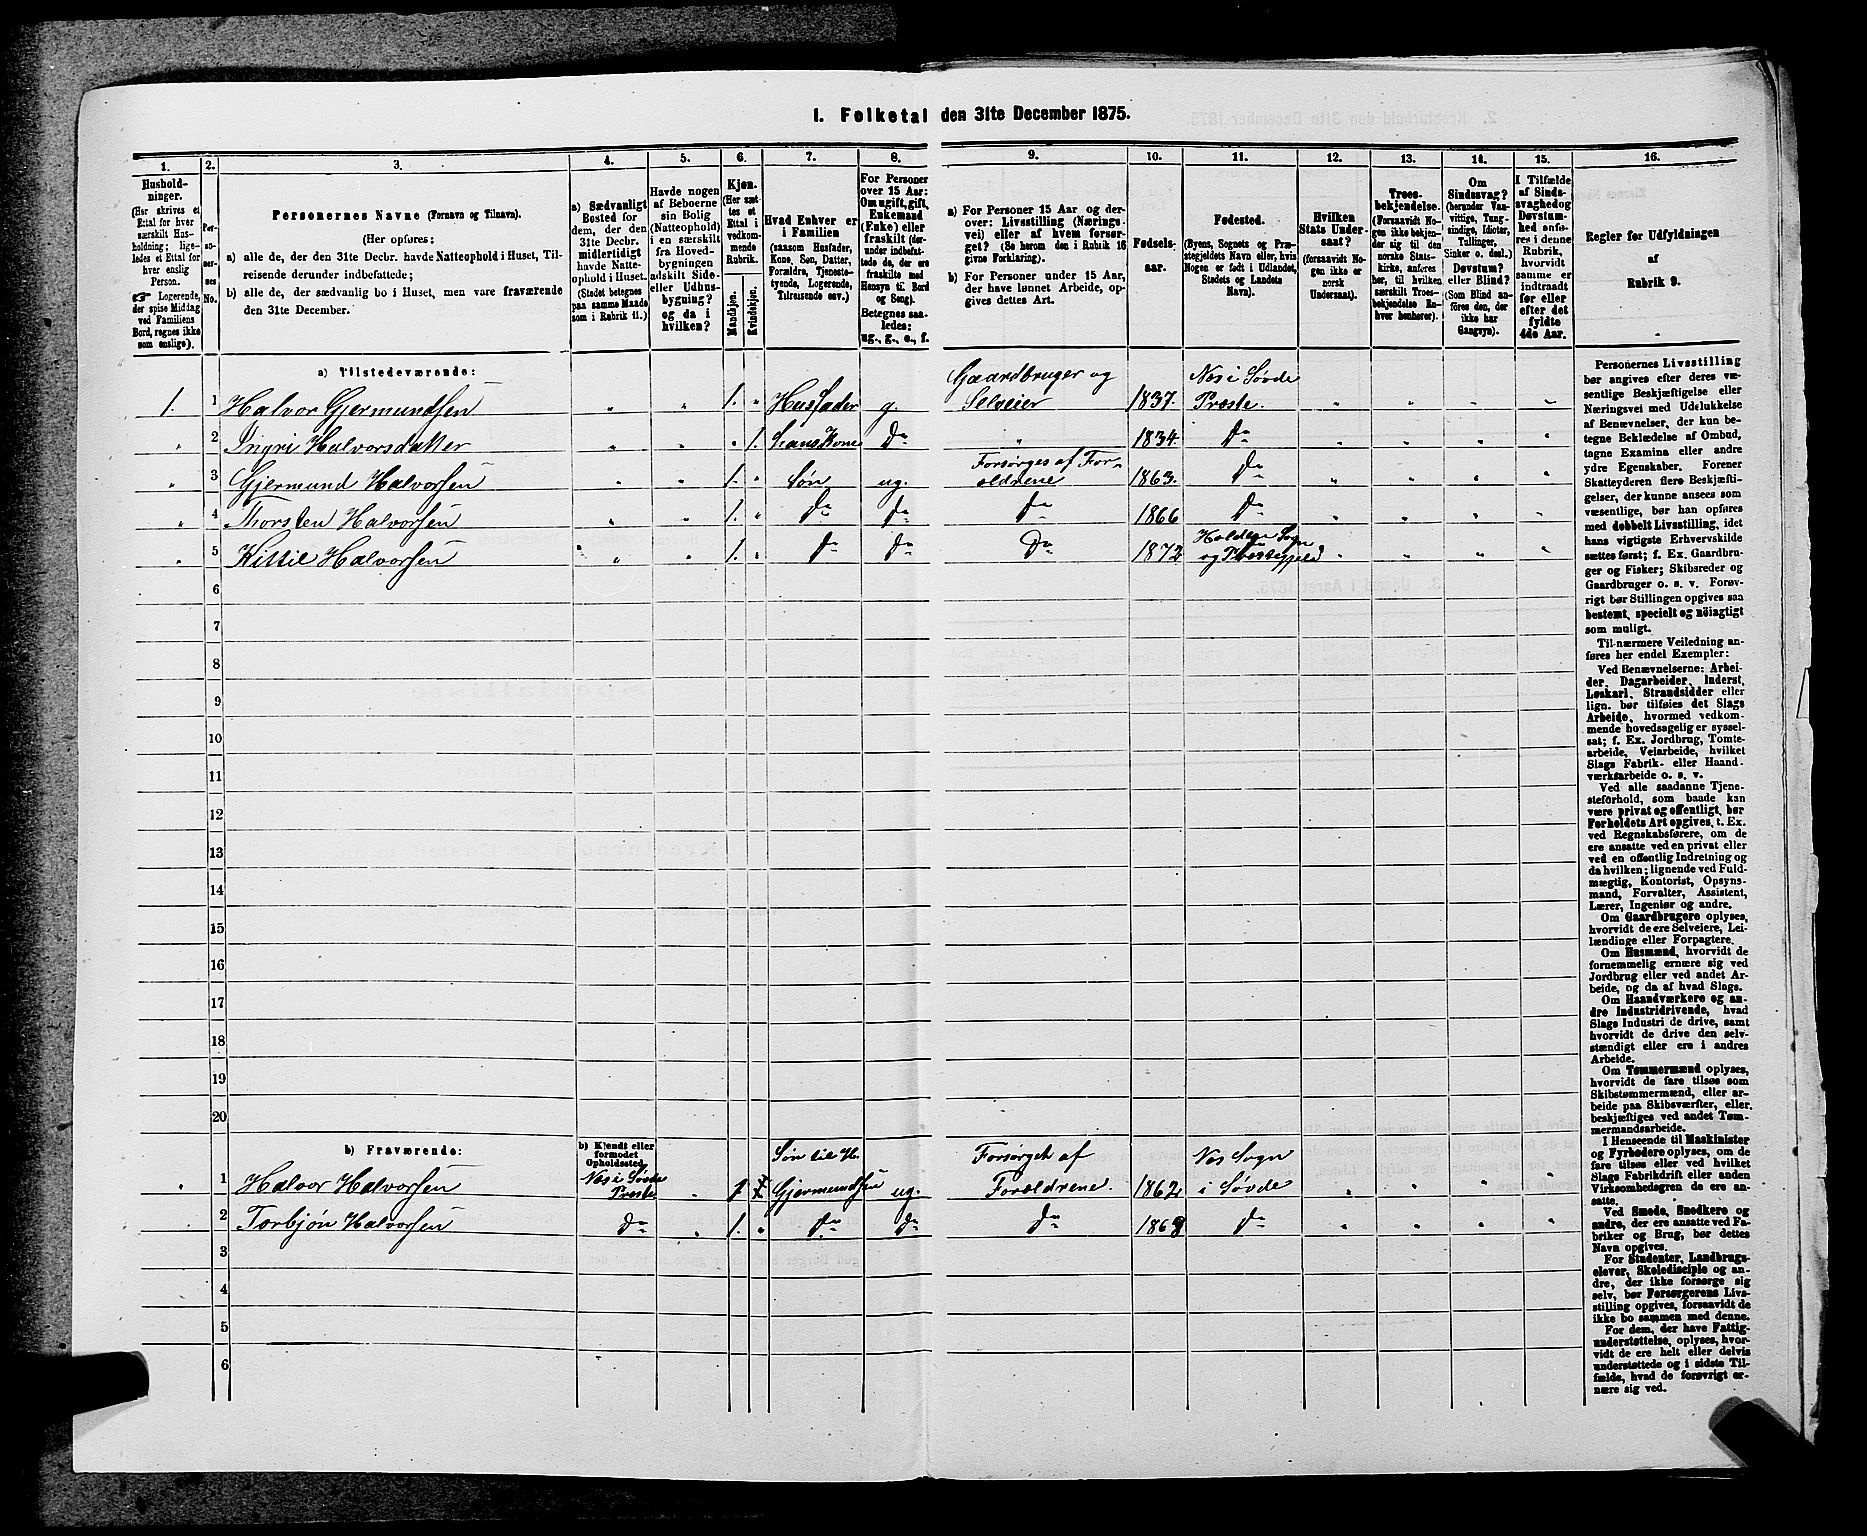 1. Folketal den 31te December 1875.
1. 2. 3. 4. 5. 6. 7. 8. 9. 10. 11. 12. 13. 14. 15. 16.
Hushold-
ninger.
(Her skrives et
Ettal for hver
særskilt Hus-
holdning; lige-
ledes et Ettal for
hver enslig
Person.
☞ Logerende,
der spise Middag
ved Familiens
Bord, regnes ikke
som enslige).
Per-
so-
ner-
nes
No.
Personernes Navne (Fornavn og Tilnavn).
(Her opføres:
a) alle de, der den 31te Decbr. havde Natteophold i Huset, Til-
reisende derunder indbefattede;
b) alle de, der sædvanlig bo i Huset, men vare fraværende
den 31te December.
a) Sædvanligt
Bosted for
dem, der den
31te Decbr.
midlertidigt
havde Natte-
ophold i Huset.
(Stedet betegnes
paa samme Maade
som i Rubrik 11.)
Havde nogen
af Beboerne
sin Bolig
(Natteophold)
i en særskilt
fra Hoved-
bygningen
adskilt Side-
eller Udhus-
bygning?
og da i
hvilken?
Kjøn.
(Her sæt-
tes et
Ettal i
vedkom-
mende
Rubrik.
Mandkjøn.
Kvindekjøn.
Hvad Enhver er
i Familien
(saasom Husfader,
Kone, Søn, Datter,
Forældre, Tjeneste-
tyende, Logerende,
Tilreisende osv.)
For Personer
over 15 Aar:
Om ugift, gift,
Enkemand
(Enke) eller
fraskilt (før-
under indbefat-
tede de, der ere
fraskilte med
Hensyn til Bord
og Seng).
Betegnes saa-
ledes:
ug., g., e., f.
a) For Personer 15 Aar og der-
over: Livsstilling (Nærings-
vei) eller af hvem forsør-
get? (Se herom den i Rubrik 16
givne Forklaring).
b) For Personer under 15 Aar,
der have lønnet Arbeide, op-
gives dettes Art.
Fødsels-
aar.
Fødested.
(Byens, Sognets og Præ-
stegjeldets Navn eller, hvis
Nogen er født i Udlandet,
Stedets og Landets
Navn).
Hvilken
Stats Under-
saat?
(foraavidt No-
gen ikke er
norsk
Undersaat).
Troes-
bekjendelse.
(Forsaavidt No-
gen ikke bekjen-
der sig til den
norske Stats-
kirke, anføres
her, til hvilken
særskilt Troes-
bekjendelse En-
hver henhører).
Om
Sindssvag?
(herunder Van-
vittige, Tung-
sindige, Idioter,
Tullinger,
Sinker o. desl.)
Døvstum?
eller Blind?
(Som Blind an-
føres den, der
ikke har
Gangsyn).
I Tilfælde
af Sinds-
svaghed og
Døvstum-
hed anfø-
res i denne
Rubrik,
hvorvidt
samme er
indtraadt
før eller
efter det
fyldte
4de Aar.
Regler for Udfyldningen
af
Rubrik 9.
a) Tilstedeværende:
1. 1 Halvor Gjermundsen „ „ 1. „ Husfader g. Gaardbruger og Selveier 1837. Nes i Søvde Præste. „ „ „ „
„ 2 Ingri Halvorsdatter „ „ „ 1. hans Kone Do „ 1834 Do „ „ „ „
„ 3 Gjermund Halvorsen „ „ 1. „ Søn ug. Forsørges af For- ældrene 1863. Do „ „ „ „
„ 4 Thorsten Halvorsen „ „ 1. „ Do Do Do 1866 Do „ „ „ „
„ 5 Kittil Halvorsen „ „ 1. „ Do Do Do 1872 Holdens Sogn og Præstegjeld „ „ „ „
6
7
8
9
10
11
12
13
14
15
16
17
18
19
20
b) Fraværende:
b) Kjendt eller
formodet
Opholdssted.
„ 1 Halvor Halvorsen Nes i Søvde Præste „ 1 Søn til H. Gjermundsen ug. Forsørget af Forældrene. 1862 Nes Sogn i Søvde „ „ „ „
„ 2 Torbjøn Halvorsen Do „ 1. „ Do Do Do 1868 Do „ „ „ „
3
4
5
6
Personernes Livsstilling
bør angives efter deres væ-
sentlige Beskjæftigelse eller
Næringsvei med Udelukkelse
af Benævnelser, der kun be-
tegne Beklædelse af Ombud,
tagne Examina eller andre
ydre Egenskaber. Forener
Skatteyderen flere Beskjæfti-
gelser, der kunne ansees som
væsentlige, bør han opføres
med dobbelt Livsstilling, idet
hans vigtigste Erhvervskilde
sættes først; f. Ex. Gaardbru-
ger og Fisker; Skibsreder og
Gaardbruger o. s. v. Forøv-
rigt bør Stillingen opgives saa
bestemt, specielt og nöiagtigt
som muligt.
Til nærmere Veiledning an-
føres her endel Exempler:
Ved Benævnelserne: Arbei-
der, Dagarbeider, Inderst,
Løskarl, Strandsidder eller
lign. bør tilføies det Slags
Arbeide, hvormed vedkom-
mende hovedsagelig er syssel-
sat; f. Ex. Jordbrug, Tomte-
arbeide, Veiarbeide, hvilket
Slags Fabrik- eller Haand-
værksarbeide o. s. v.
Ved alle saadanne Tjene-
steforhold, som baade kan
være privat og offentligt, bør
Forholdets Art opgives, t. Ex.
ved Regnskabsførere, om de
ere ansatte ved en privat eller
ved en offentlig Indretning og
da hvilken; lignende ved Fuld-
mægtig, Kontorist, Opsyns-
mand, Forvalter, Assistent,
Lærer, Ingeniør og andre.
Om Gaardbrugere oplyses,
hvorvidt de ere Selveiere, Lei-
lændinge eller Forpagtere.
Om Husmænd, hvorvidt de
fornemmelig ernære sig ved
Jordbrug eller ved andet Ar-
beide, og da af hvad Slags.
Om Haandværkere og an-
dre Industridrivende, hvad
Slags Industri de drive, samt
hvorvidt de drive den selv-
stændigt eller ere i andres
Arbeide.
Om Tømmermænd oplyses,
hvorvidt de fare tilsøs som
Skibstømmermænd, eller ar-
beide paa Skibsværfter, eller
beskjæftiges ved andet Tøm-
mermandsarbeide.
I Henseende til Maskinister
og Fyrbødere oplyses, om de
fare tilsøs eller ved hvilket
Slags Fabrikdrift eller anden
Virksomhedsgren de ere an-
satte.
Ved Smede, Snedkere og
andre, der ere ansatte ved Fa-
briker og Brug, bør dettes
Navn opgives.
For Studenter, Landbrugs-
elever, Skoledisciple og an-
dre, der ikke forsørge sig
selv, bør Forsørgerens Livs-
stilling opgives, forsaavidt de
ikke bo sammen med denne.
For dem, der have Fattig-
understøttelse, oplyses, hvor-
vidt de ere helt eller delvis
understøttede og i sidste Til-
fælde, hvad de forøvrigt er-
nære sig ved.